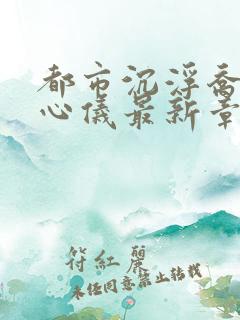 都市沉浮乔
心仪最新章
符紅麗
未经同意禁止转载